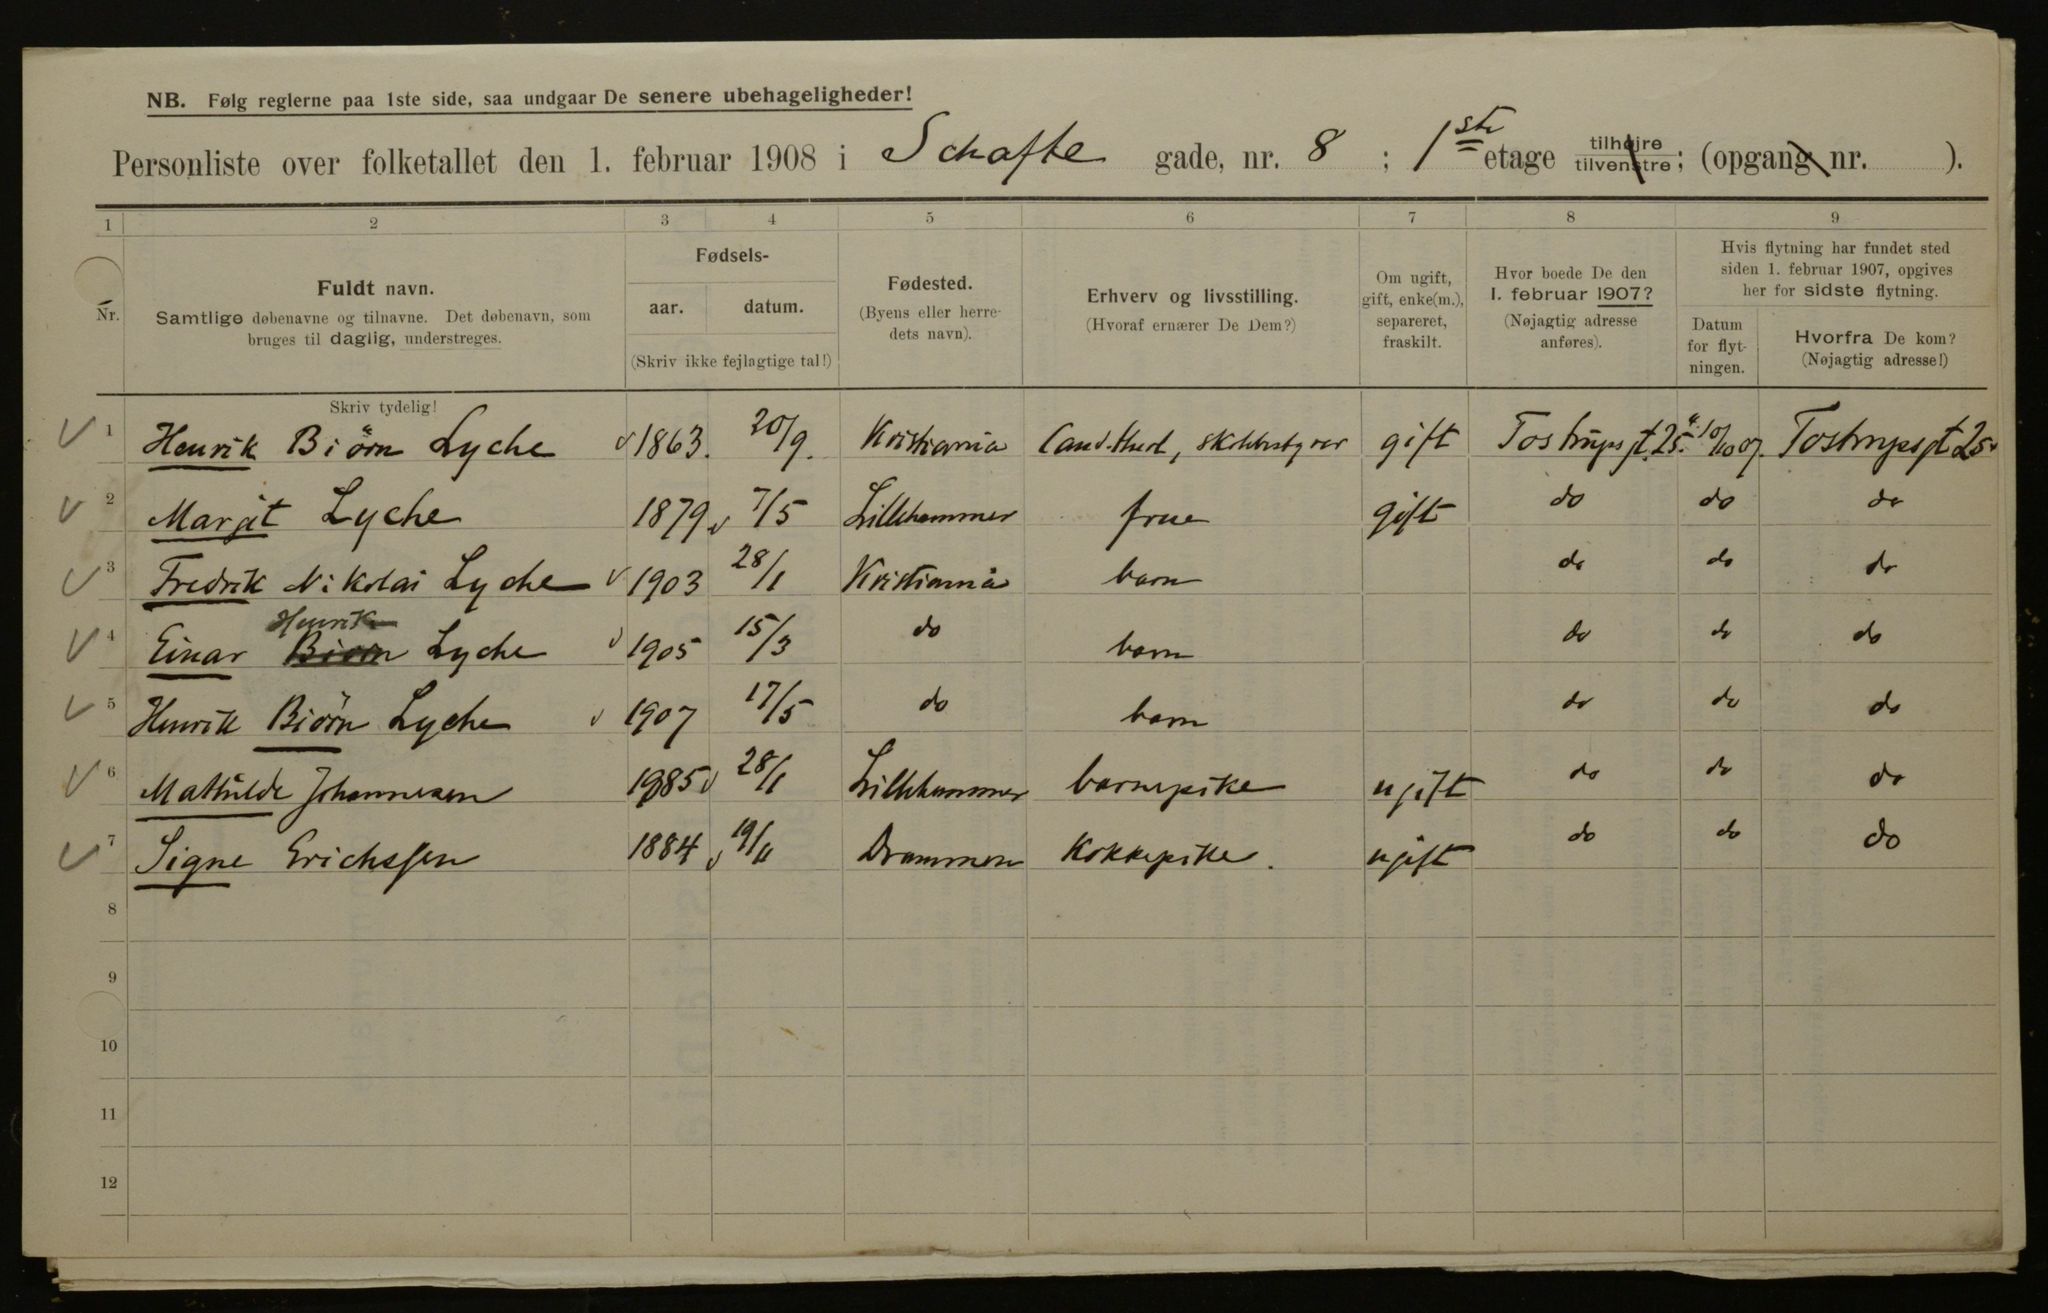 NB. Følg reglerne paa 1ste side, saa undgaar De senere ubehageligheder!
Personliste over folketallet den 1. februar 1908 i Schafte gade, nr. 8 ; 1ste etage tilhøjre tilvenstre; (opgang nr. ).
1 2 3 4 5 6 7 8 9
Nr.
Fuldt navn.
Samtlige døbenavne og tilnavne. Det døbenavn, som
bruges til daglig, understreges.
Fødsels-
aar. datum.
(Skriv ikke fejlagtige tal!)
Fødested.
(Byens eller herre-
dets navn).
Erhverv og livsstilling.
(Hvoraf ernærer De Dem?)
Om ugift,
gift, enke(m.),
separeret,
fraskilt.
Hvor boede De den
1. februar 1907?
(Nøjagtig adresse
anføres).
Hvis flytning har fundet sted
siden 1. februar 1907, opgives
her for sidste flytning.
Datum
for flyt-
ningen.
Hvorfra De kom?
(Nøjagtig adresse!)
Skriv tydelig!
1 Henrik Biørn Lyche 1863. 20/9. Kristiania Cand. , skolebestyrer gift Tostrupsgt. 25. 10/10 07. Tostrupsgt 25.
2 Margit Lyche 1879 7/5 Lillehammer frue gift do do do
3 Fredrik Nikolai Lyche 1903 28/1 Kristiania barn do do do
Henrik
4 Einar Biørn Lyche 1905 15/3 do barn do do do
5 Henrik Biørn Lyche 1907 17/5 do barn do do do
6 Mathilde Johannesen 1985 28/1 Lillehammer barnepike ugift do do do
7 Signe Erichssen 1884 19/11 Drammen Kokkepike. ugift do do do
8
9
10
11
12